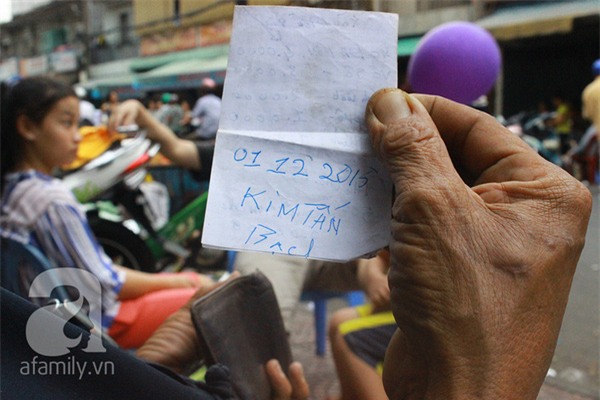 01 12 2015
KIM TẤN
Bạch
afamily.vn